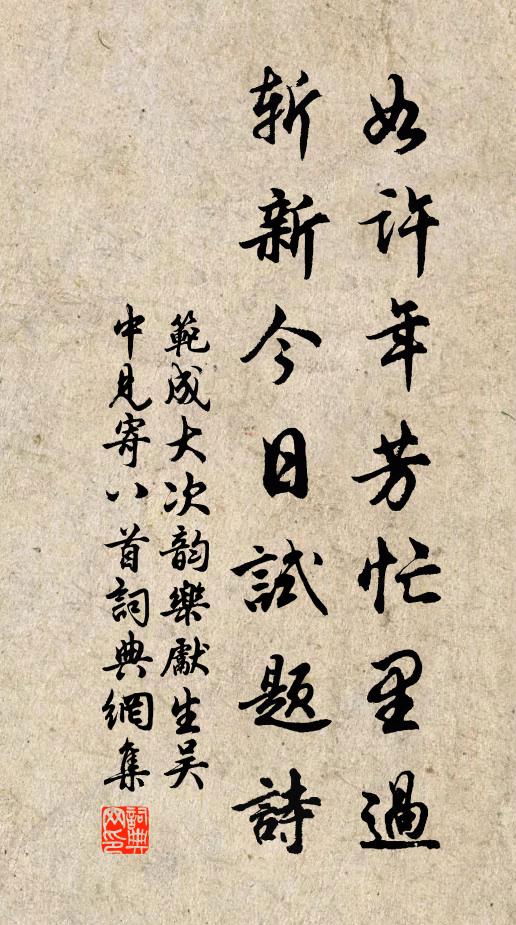 如许年芳忙里過
斬新今日試題詩
範成大次韵樂獻生吴
中見寄八首詞典網集
詞典
网印